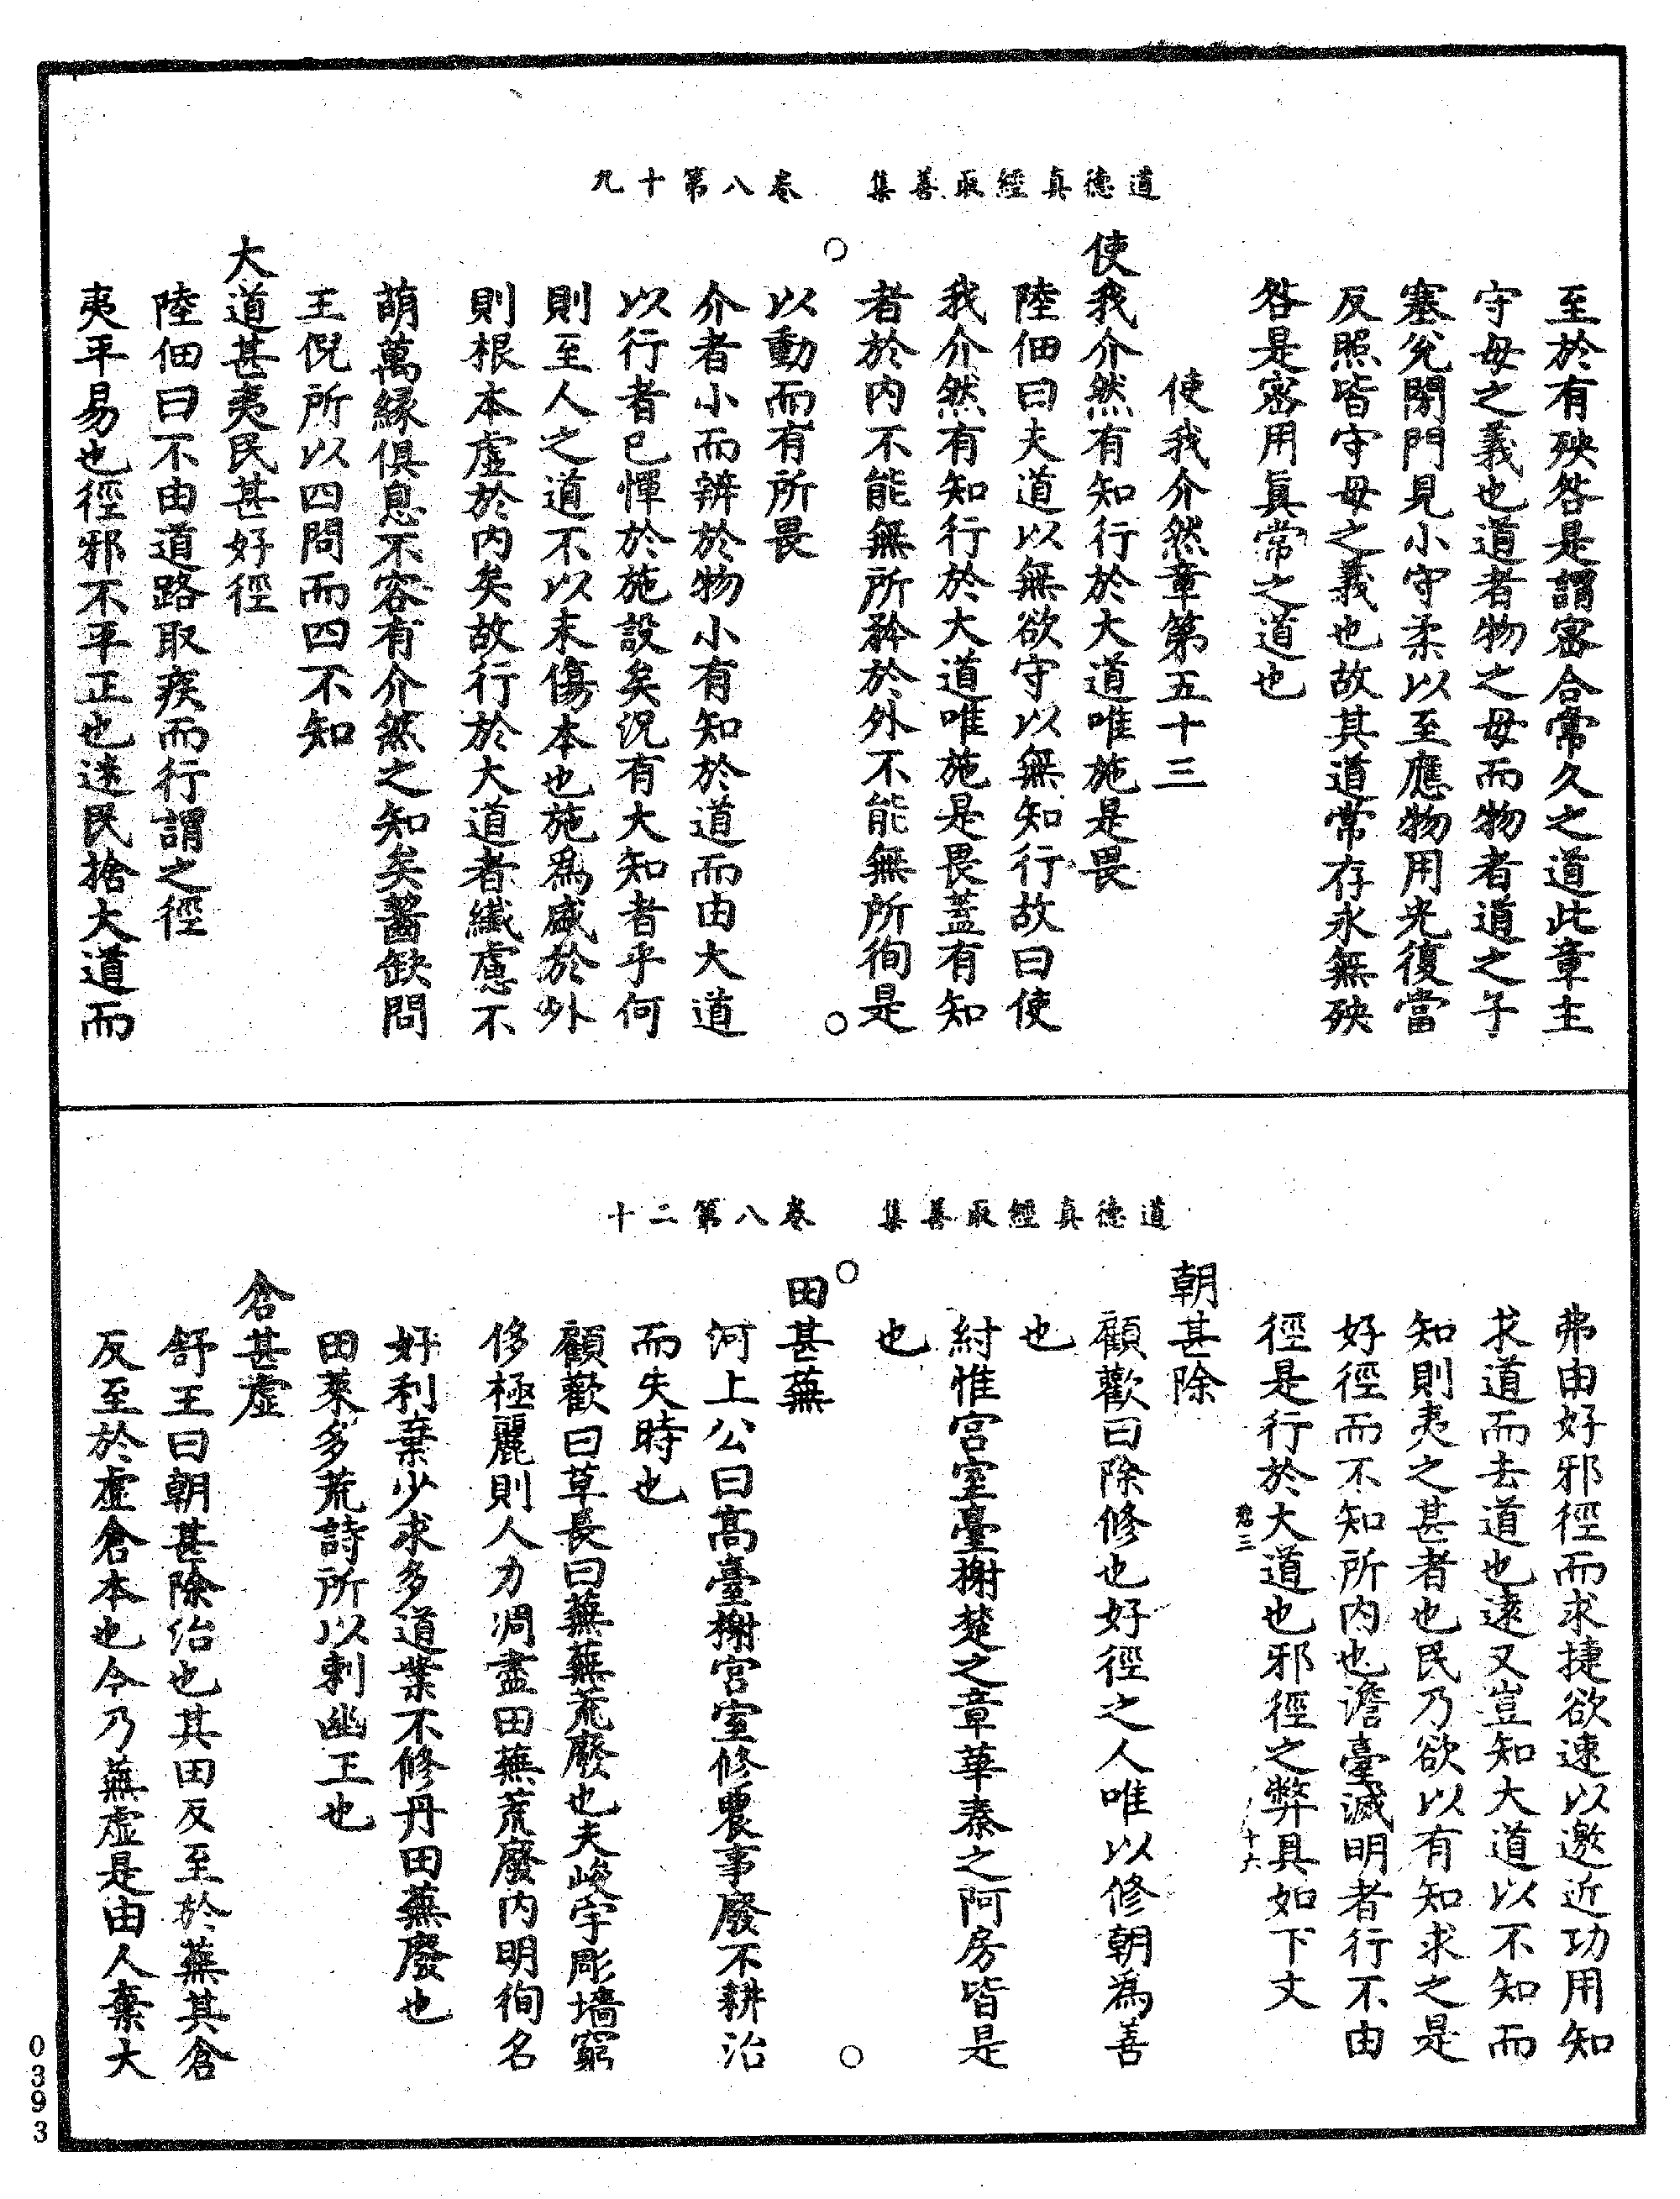 道德真經取善集　卷八第十九
至於有殃咎是謂密合常久之道此章主
守母之義也道者物之母而物者道之子
塞兊閉門見小守柔以至應物用光復當
反照皆守母之義也故其道常存永無殃
咎是密用眞常之道也
使我介然章第五十三
使我介然有知行於大道唯施是畏
陸佃曰夫道以無欲守以無知行故曰使
我介然有知行於大道唯施是畏蓋有知
者於内不能無所矜於外不能無所徇是
以動而有所畏
介者小而辨於物小有知於道而由大道
以行者已憚於施設矣況有大知者乎何
則至人之道不以末傷本也施爲盛於外
則根本虛於内矣故行於大道者纎慮不
萌萬縁俱息不容有介然之知矣齧缺問
王倪所以四問而四不知
大道甚夷民甚好徑
陸佃曰不由道路取疾而行謂之徑
夷平易也徑邪不平正也迷民捨大道而
道德真經取善集　卷八第二十
弗由好邪徑而求捷欲速以邀近功用知
求道而去道也遠又豈知大道以不知而
知則夷之甚者也民乃欲以有知求之是
好徑而不知所内也澹臺滅明者行不由
徑是行於大道也邪徑之弊具如下文
悲三
十六
朝甚除
顧歡曰除修也好徑之人唯以修朝爲善
也
紂惟宫室臺榭楚之章華秦之阿房皆是
也
田甚蕪
河上公曰髙臺榭宫室修農事廢不耕治
而失時也
顧歡曰草長曰蕪蕪荒廢也夫峻宇彫墻窮
侈極麗則人力凋盡田蕪荒廢内明徇名
好利棄少求多道業不修丹田蕪廢也
田萊多荒詩所以刺幽王也
倉甚虛
舒王曰朝甚除治也其田反至於蕪其倉
反至於虛倉本也今乃蕪虛是由人棄大
0393